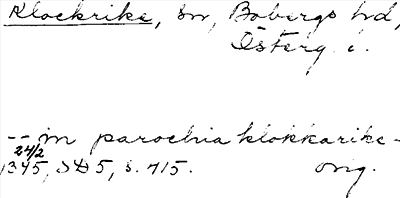 Klockrike, sn, Bobergs hd,
Österg. l.
-- in parochia klokkarike -
24/2
1345, SD 5, s. 415. orig.